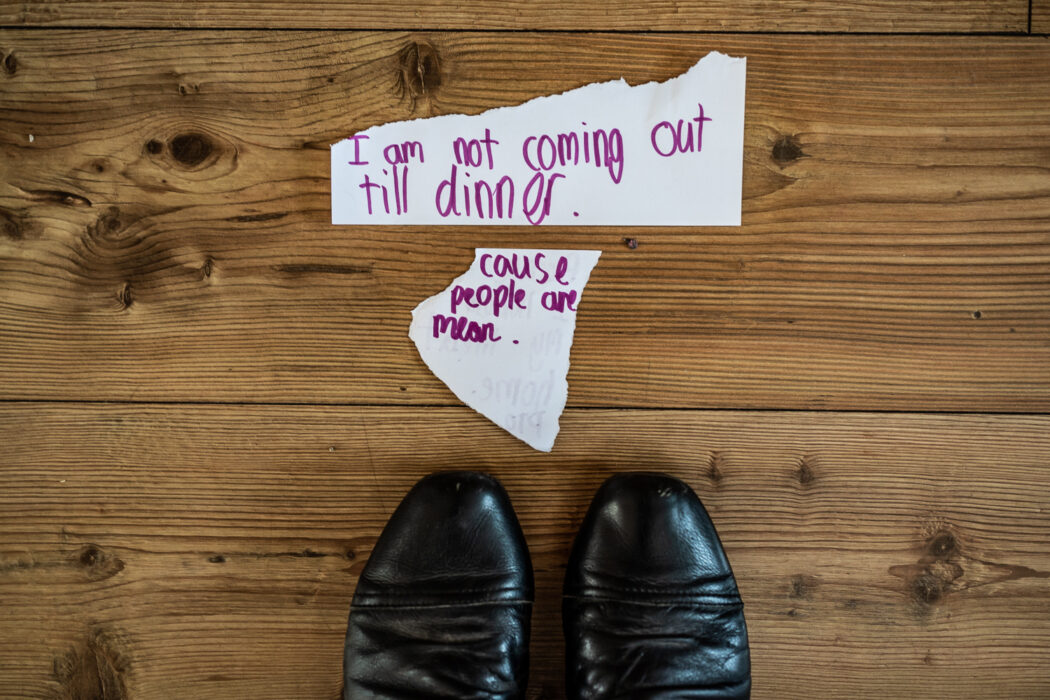 I am not coming out
till dinner.
cause
people are
mean.